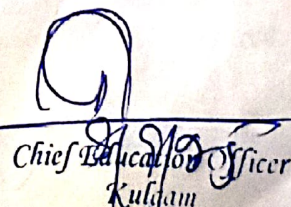 Chief Education Officer
Kulgam